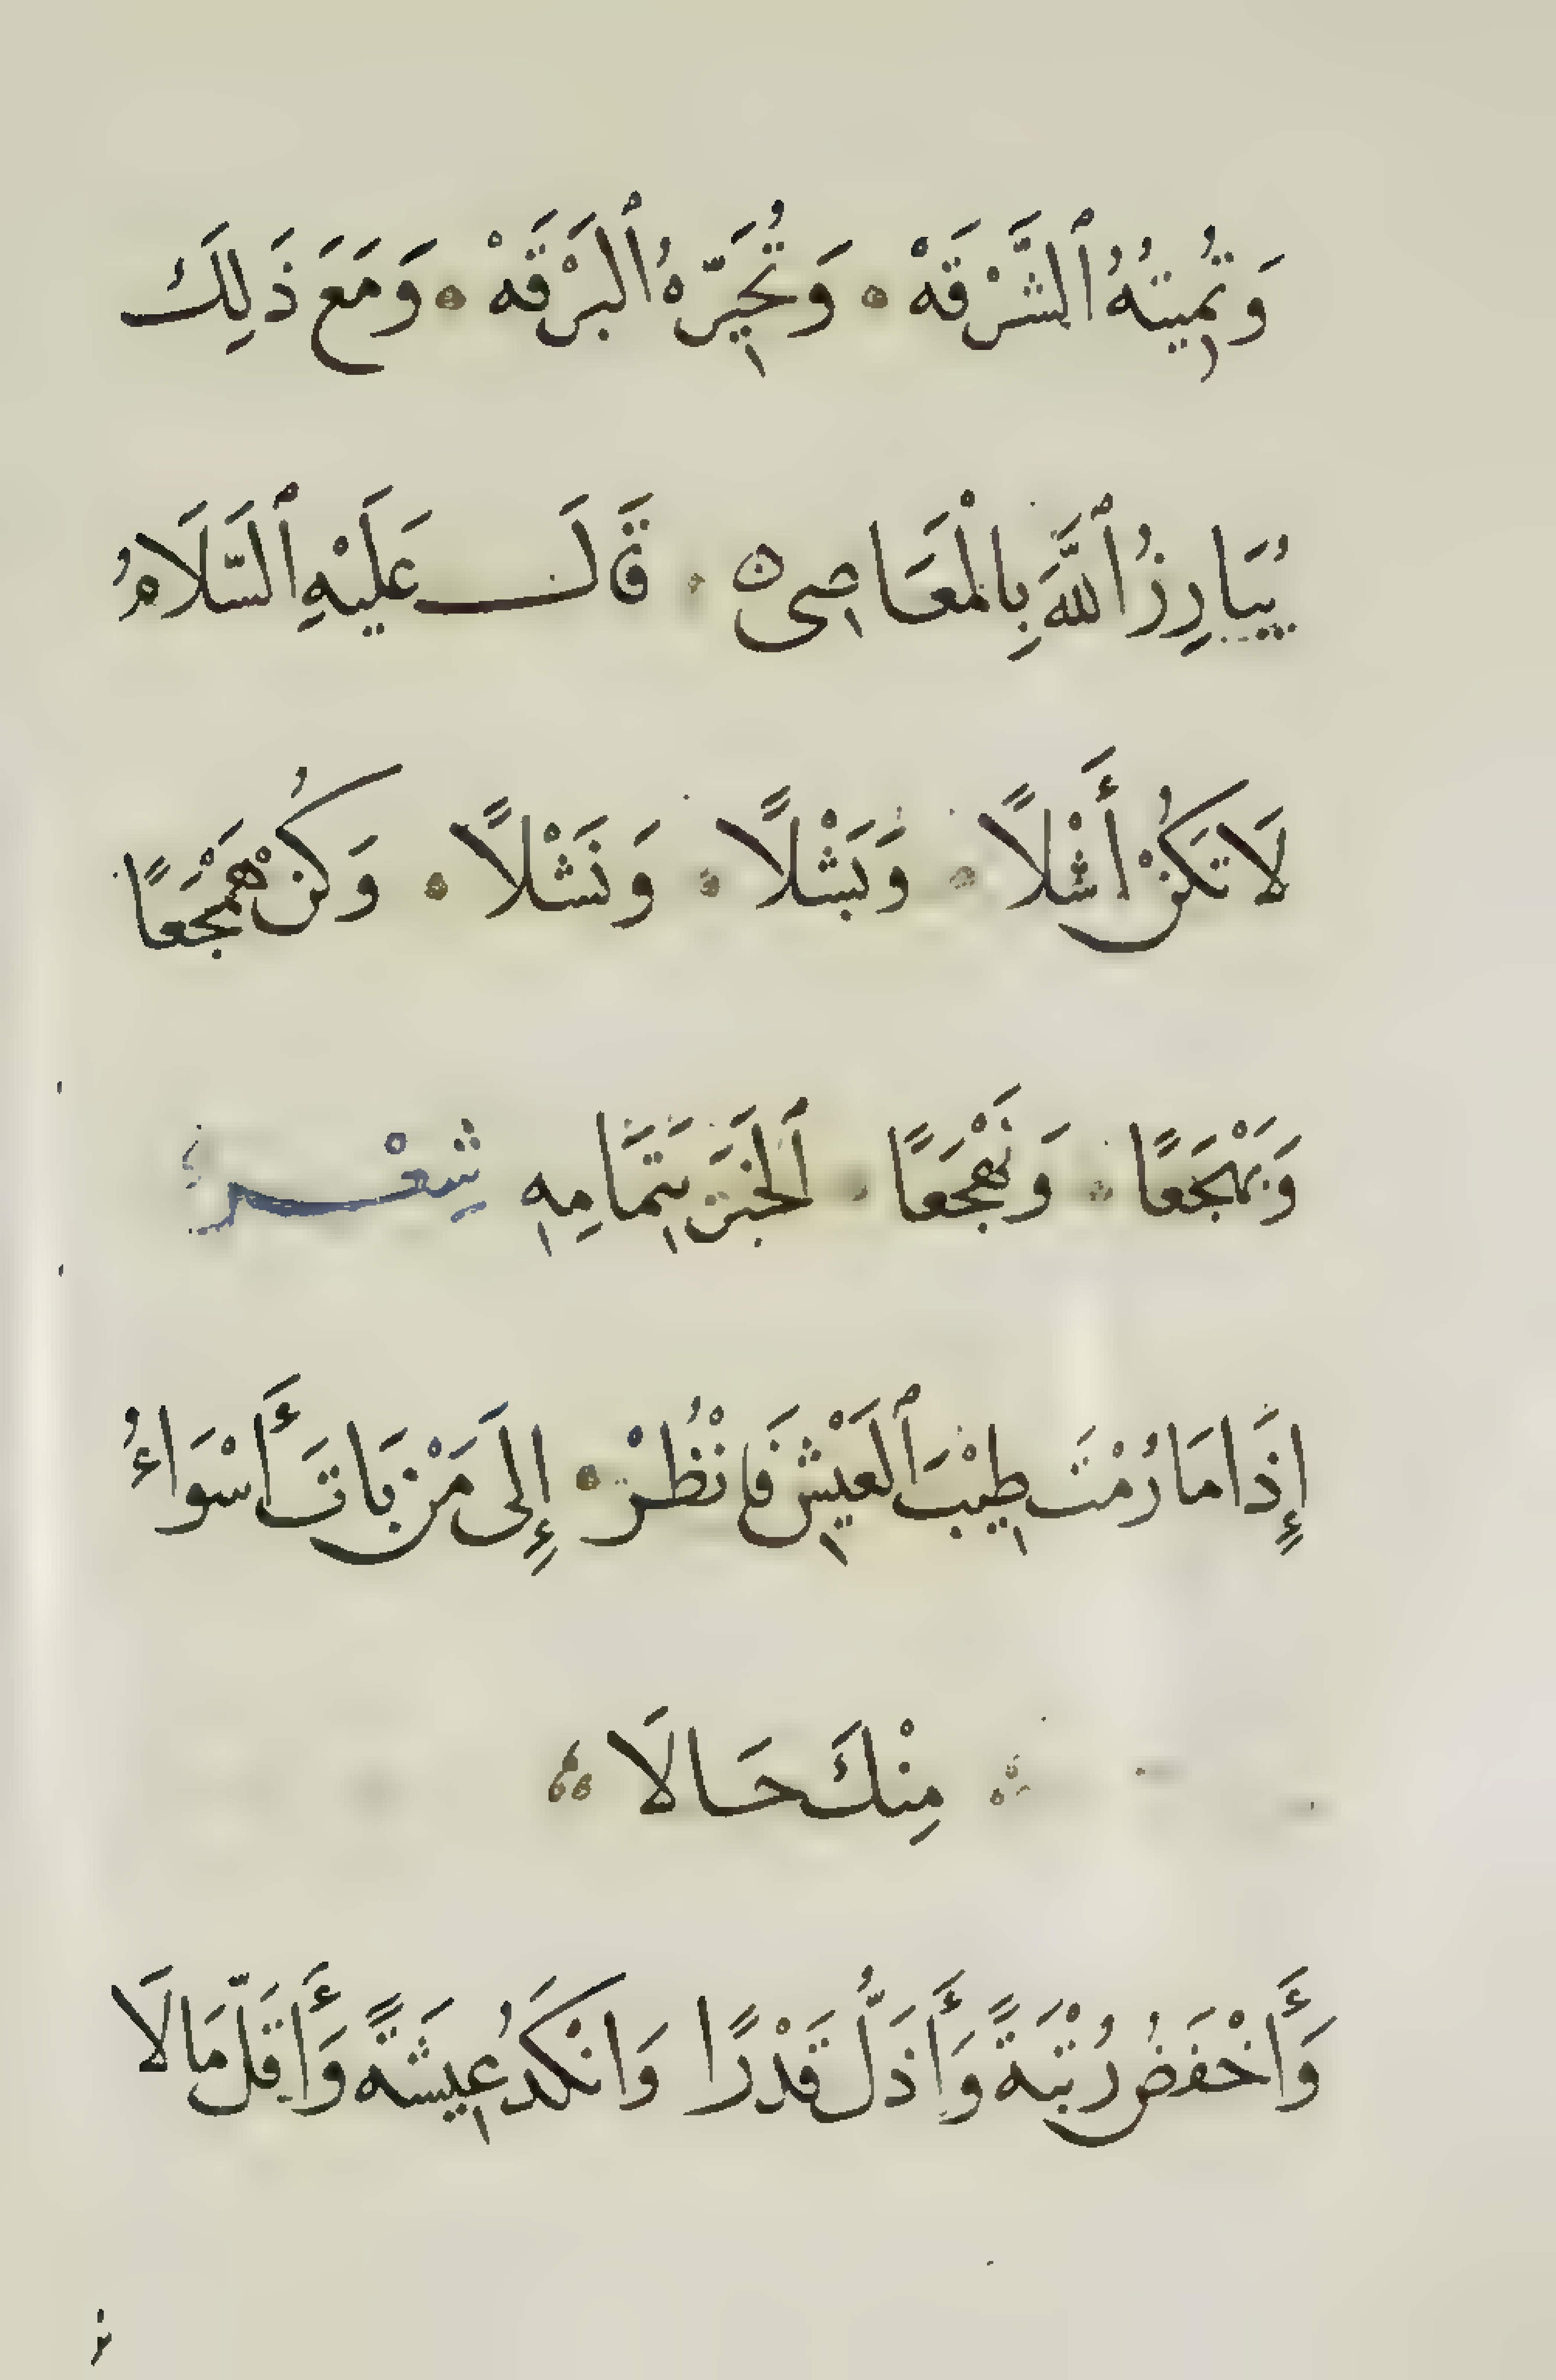 وَتُمِيتُهُ ٱلشَّرْقَهْ ۞ وَتُحَيِّرُهُ ٱلْبَرْقَهْ ۞ وَمَعَ ذَلِكَ
يُبَارِزُ ٱللَّهَ بِالْمَعَاصِى ۞ قَالَ عَلَيْهِ ٱلسَّلَامُ
لَا تَكُنْ أَثْلًا ۞ وَبَثْلًا ۞ وَنَثْلًا ۞ وَكُنْ هَمْجَعًا
وَبَهْجَعًا ۞ وَنَهْجَعًا ۞ ٱلْخَبَرَ بِتَمَامِهِ شِعْر
إِذَا مَا رُمْتَ طِيْبَ ٱلْعَيْشِ فَانْظُرْ ۞ إِلَى مَنْ بَاتَ أَسْوَاءُ
مِنْكَ حَالَا
وَأَخْفَضُ رُتْبَةً وَأَذَلُّ قَدْرًا وَانْكَدُ عِيشَةً وَأَقَلَّ مَالَا